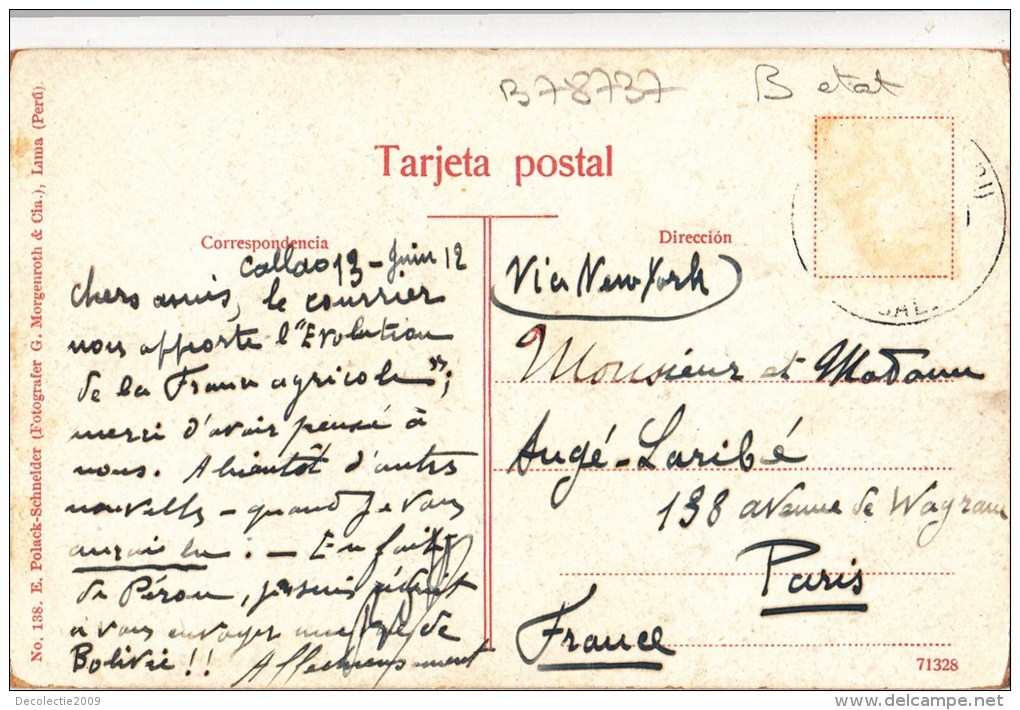 B78737
B etat
Tarjeta postal
Correspondencia
Dirección
Callao 13 - Juin 12
chers amis, le courrier
nous apporte l'"Evolution
de la France agricole";
merci d'avoir pensé à
nous. A bientôt d'autres
nouvelles - quand je vous
aurai lu. - En fait
de Pérou, je suis réduit
à vous envoyer une vue de
Bolivie !! Affectueusement
(Via New York)
Monsieur et Madame
Augé-Laribé
138 avenue de Wagram
Paris
France
71328
No. 138. E. Polack-Schneider (Fotografer G. Morgenroth & Cia.), Lima (Perú)
Decolectie2009
delcampe.net